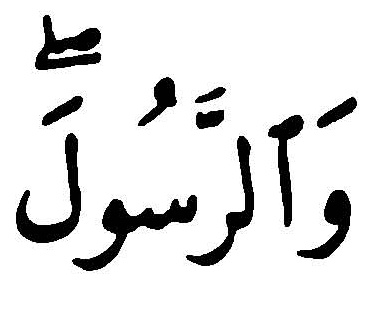 وَٱلرَّسُولَۖ